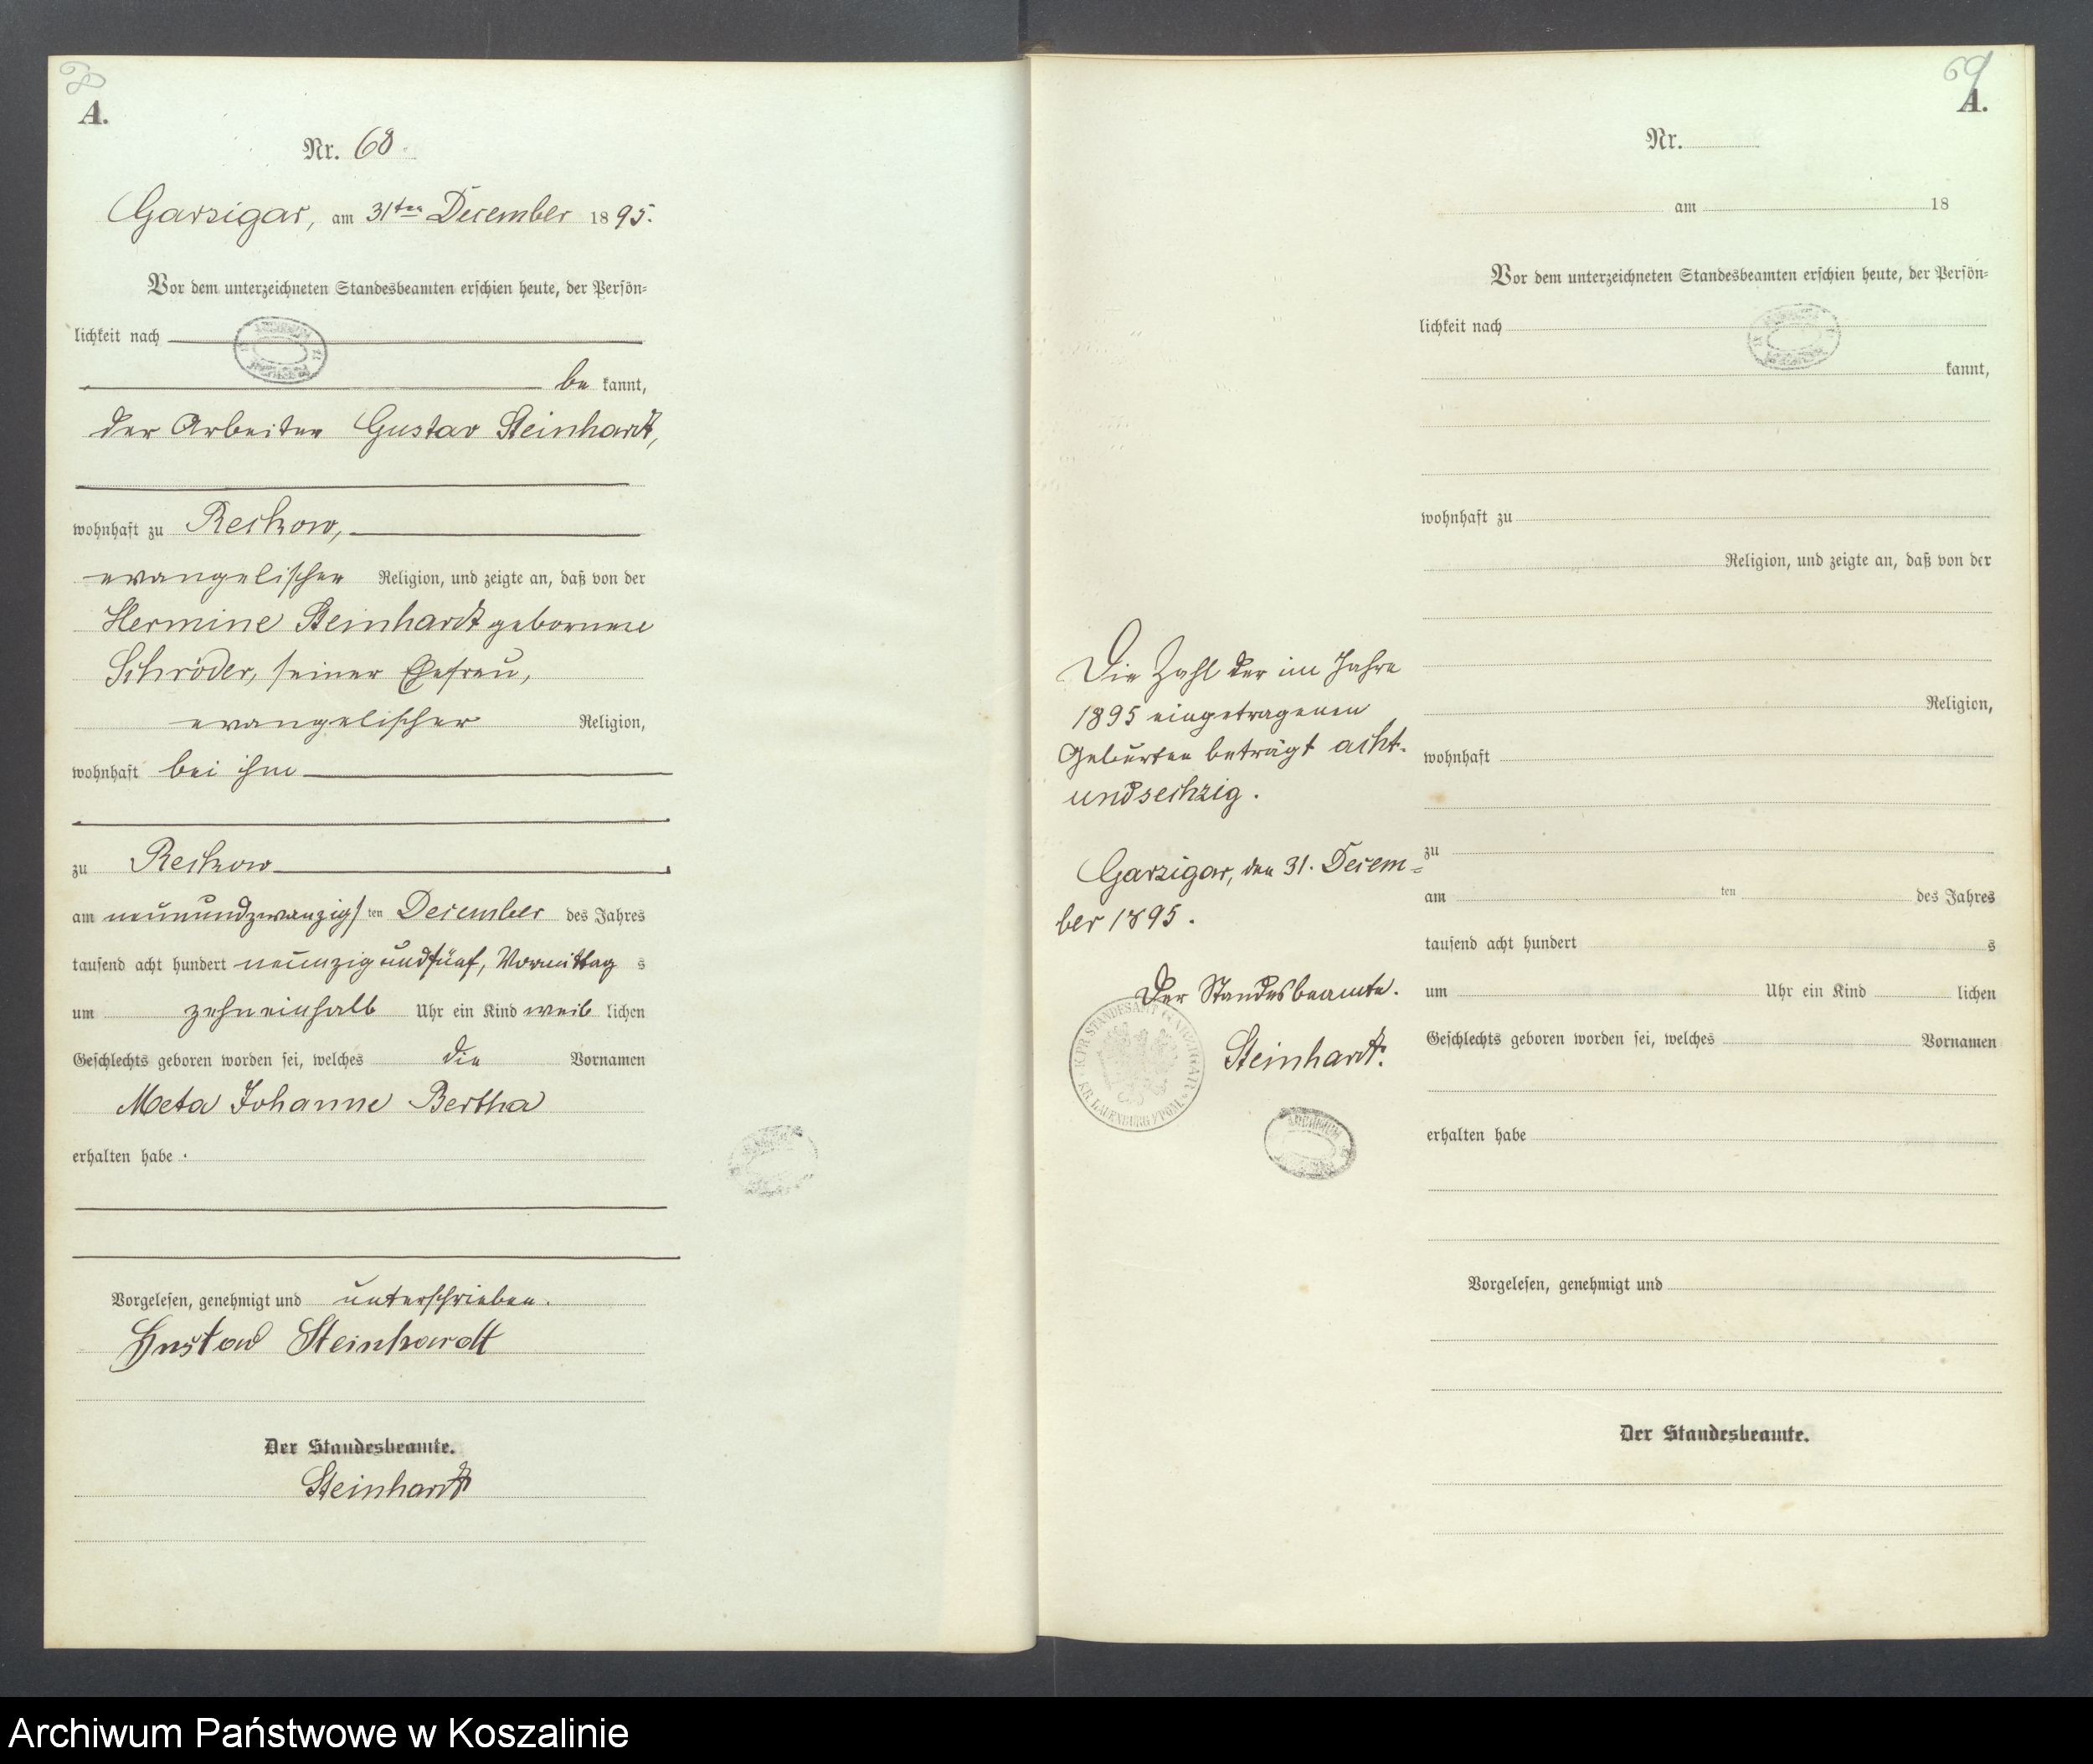 A.
Nr. 68.
Garzigar, am 31ten December 1895.
Vor dem unterzeichneten Standesbeamten erschien heute, der Persön=
lichkeit nach
be kannt,
der Arbeiter Gustav Steinhardt,
wohnhaft zu Reckow,
evangelischer Religion, und zeigte an, daß von der
Hermine Steinhardt geborenen
Schröder, seiner Ehefrau,
evangelischer Religion,
wohnhaft bei ihm
zu Reckow
am neunundzwanzig ten December des Jahres
tausend acht hundert neunzig und fünf, Vormittag s
um zehneinhalb Uhr ein Kind weib lichen
Geschlechts geboren worden sei, welches die Vornamen
Meta Johanne Bertha
erhalten habe.
Vorgelesen, genehmigt und unterschrieben.
Gustav Steinhardt
Der Standesbeamte.
Steinhardt
69
A.
Nr.
am 18
Vor dem unterzeichneten Standesbeamten erschien heute, der Persön=
lichkeit nach
kannt,
wohnhaft zu
Religion, und zeigte an, daß von der
Religion,
wohnhaft
zu
am ten des Jahres
tausend acht hundert s
um Uhr ein Kind lichen
Geschlechts geboren worden sei, welches Vornamen
erhalten habe
Vorgelesen, genehmigt und
Der Standesbeamte.
Die Zahl der im Jahre
1895 eingetragenen
Geburten beträgt acht-
undsechzig.
Garzigar, den 31. Decem=
ber 1895.
Der Standesbeamte.
Steinhardt.
KPR. STANDESAMT GARZIGAR
KR. LAUENBURG I/POM.
Archiwum Państwowe w Koszalinie